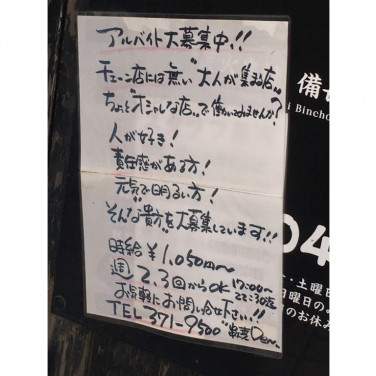 アルバイト大募集中!!
チェーン店には無い"大人が集る店"
ちょっと"オシャレな店"で働いてみませんか?
人が好き!
責任感がある方!
元気で明るい方!
そんな"貴方"を大募集しています!!
時給¥1,050円〜
週2.3回からOK 17:00〜
22:30迄
お気軽にお問い合せ下さい!!
TEL 371-9500
備
i Bincho
04
土曜日
日曜日の
のお休み